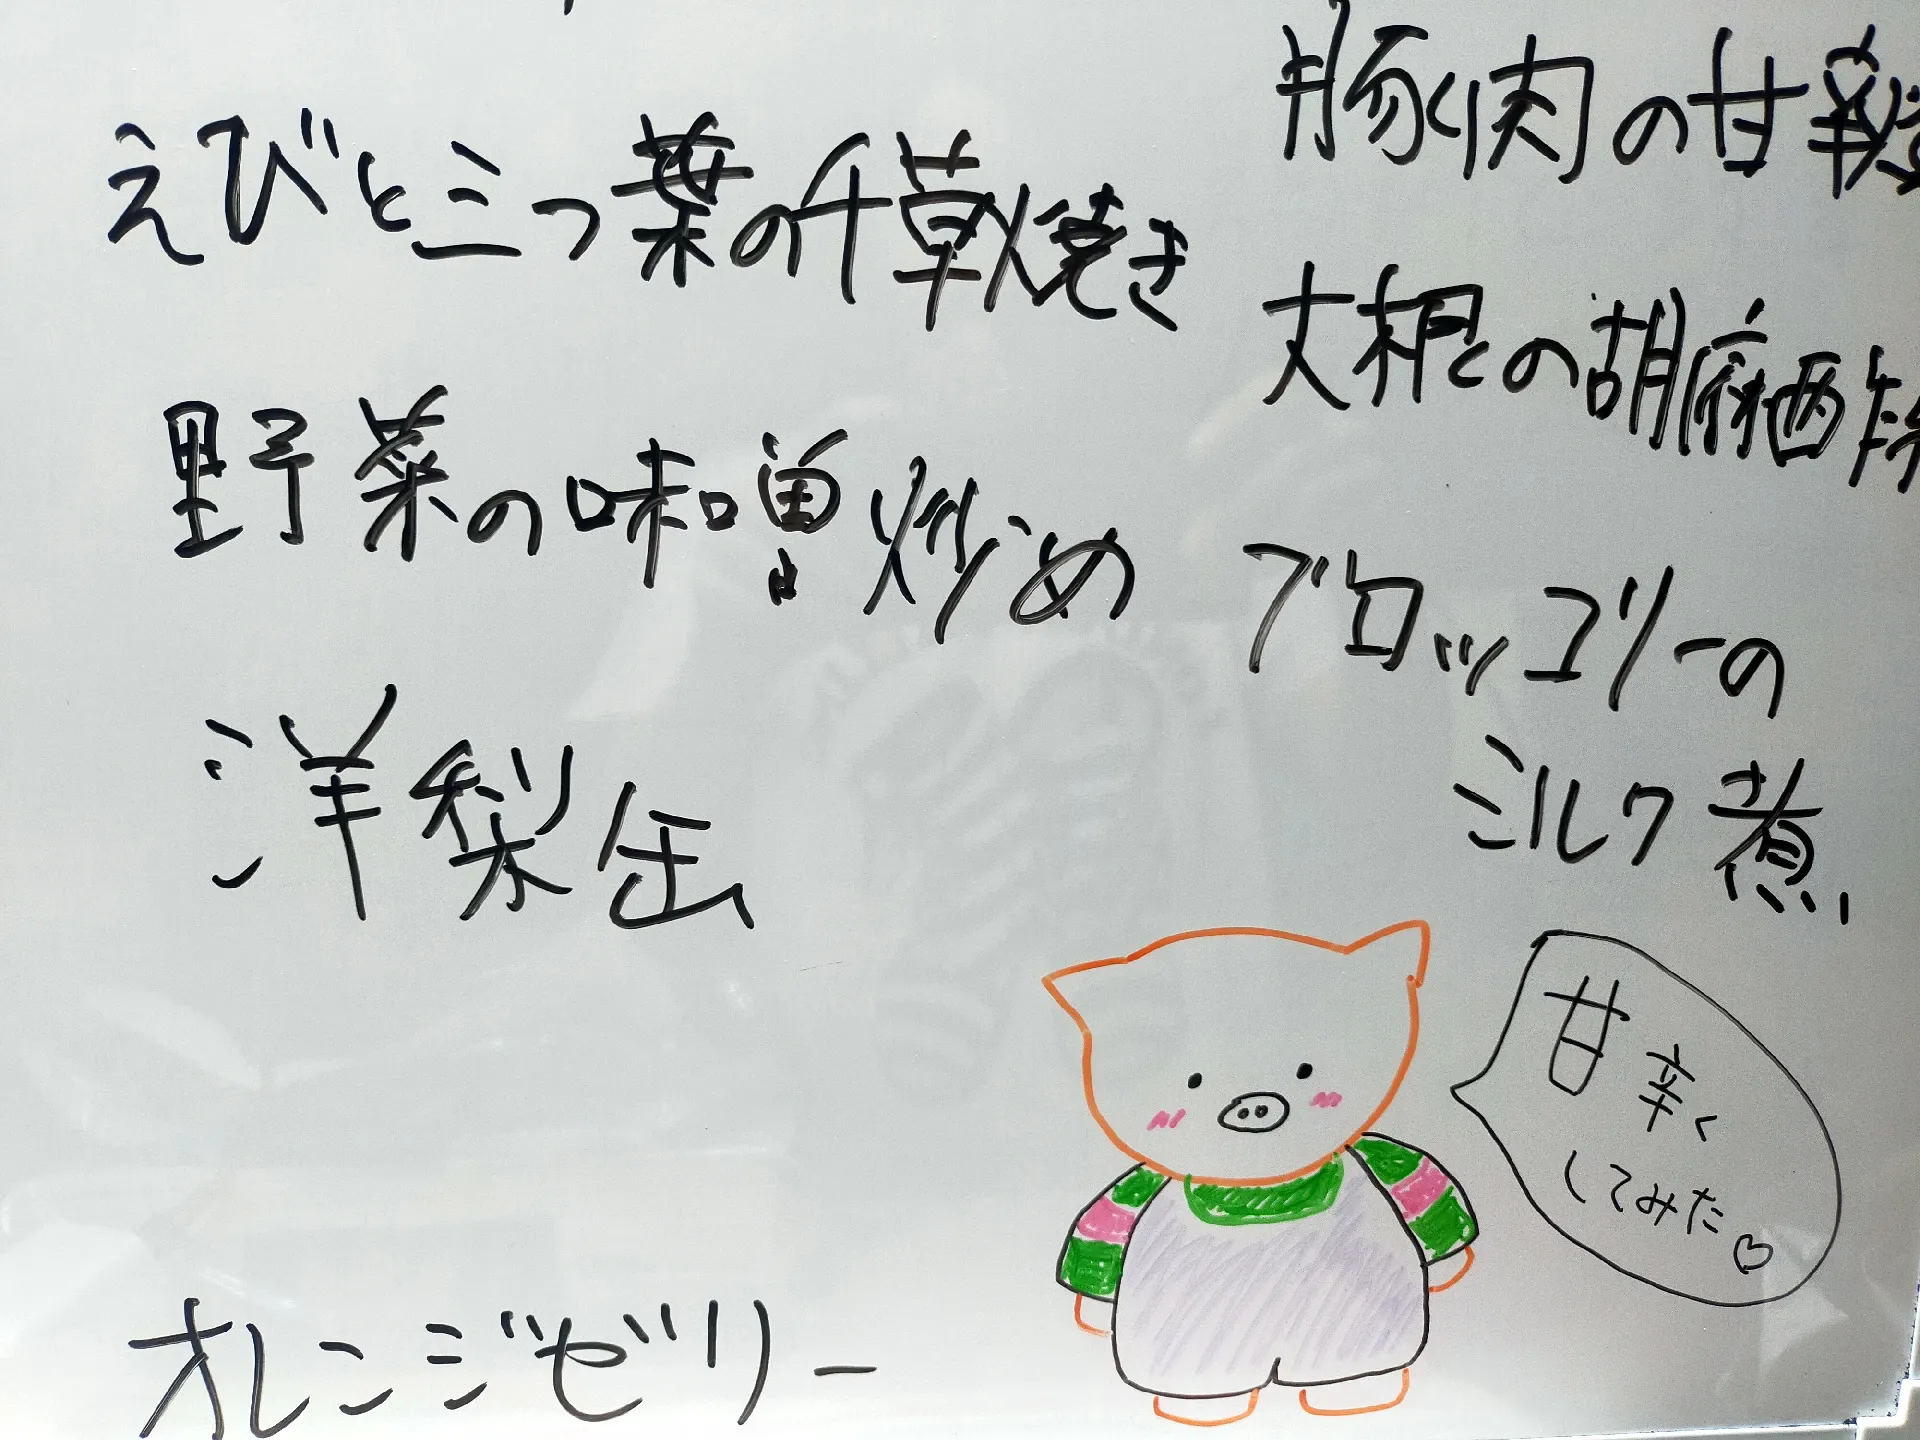 えびと三つ葉の千草焼き
野菜の味噌炒め
洋梨缶
オレンジゼリー
豚肉の甘
大根の胡麻酢
ブロッコリーの
ミルク煮
甘辛く
してみた♡